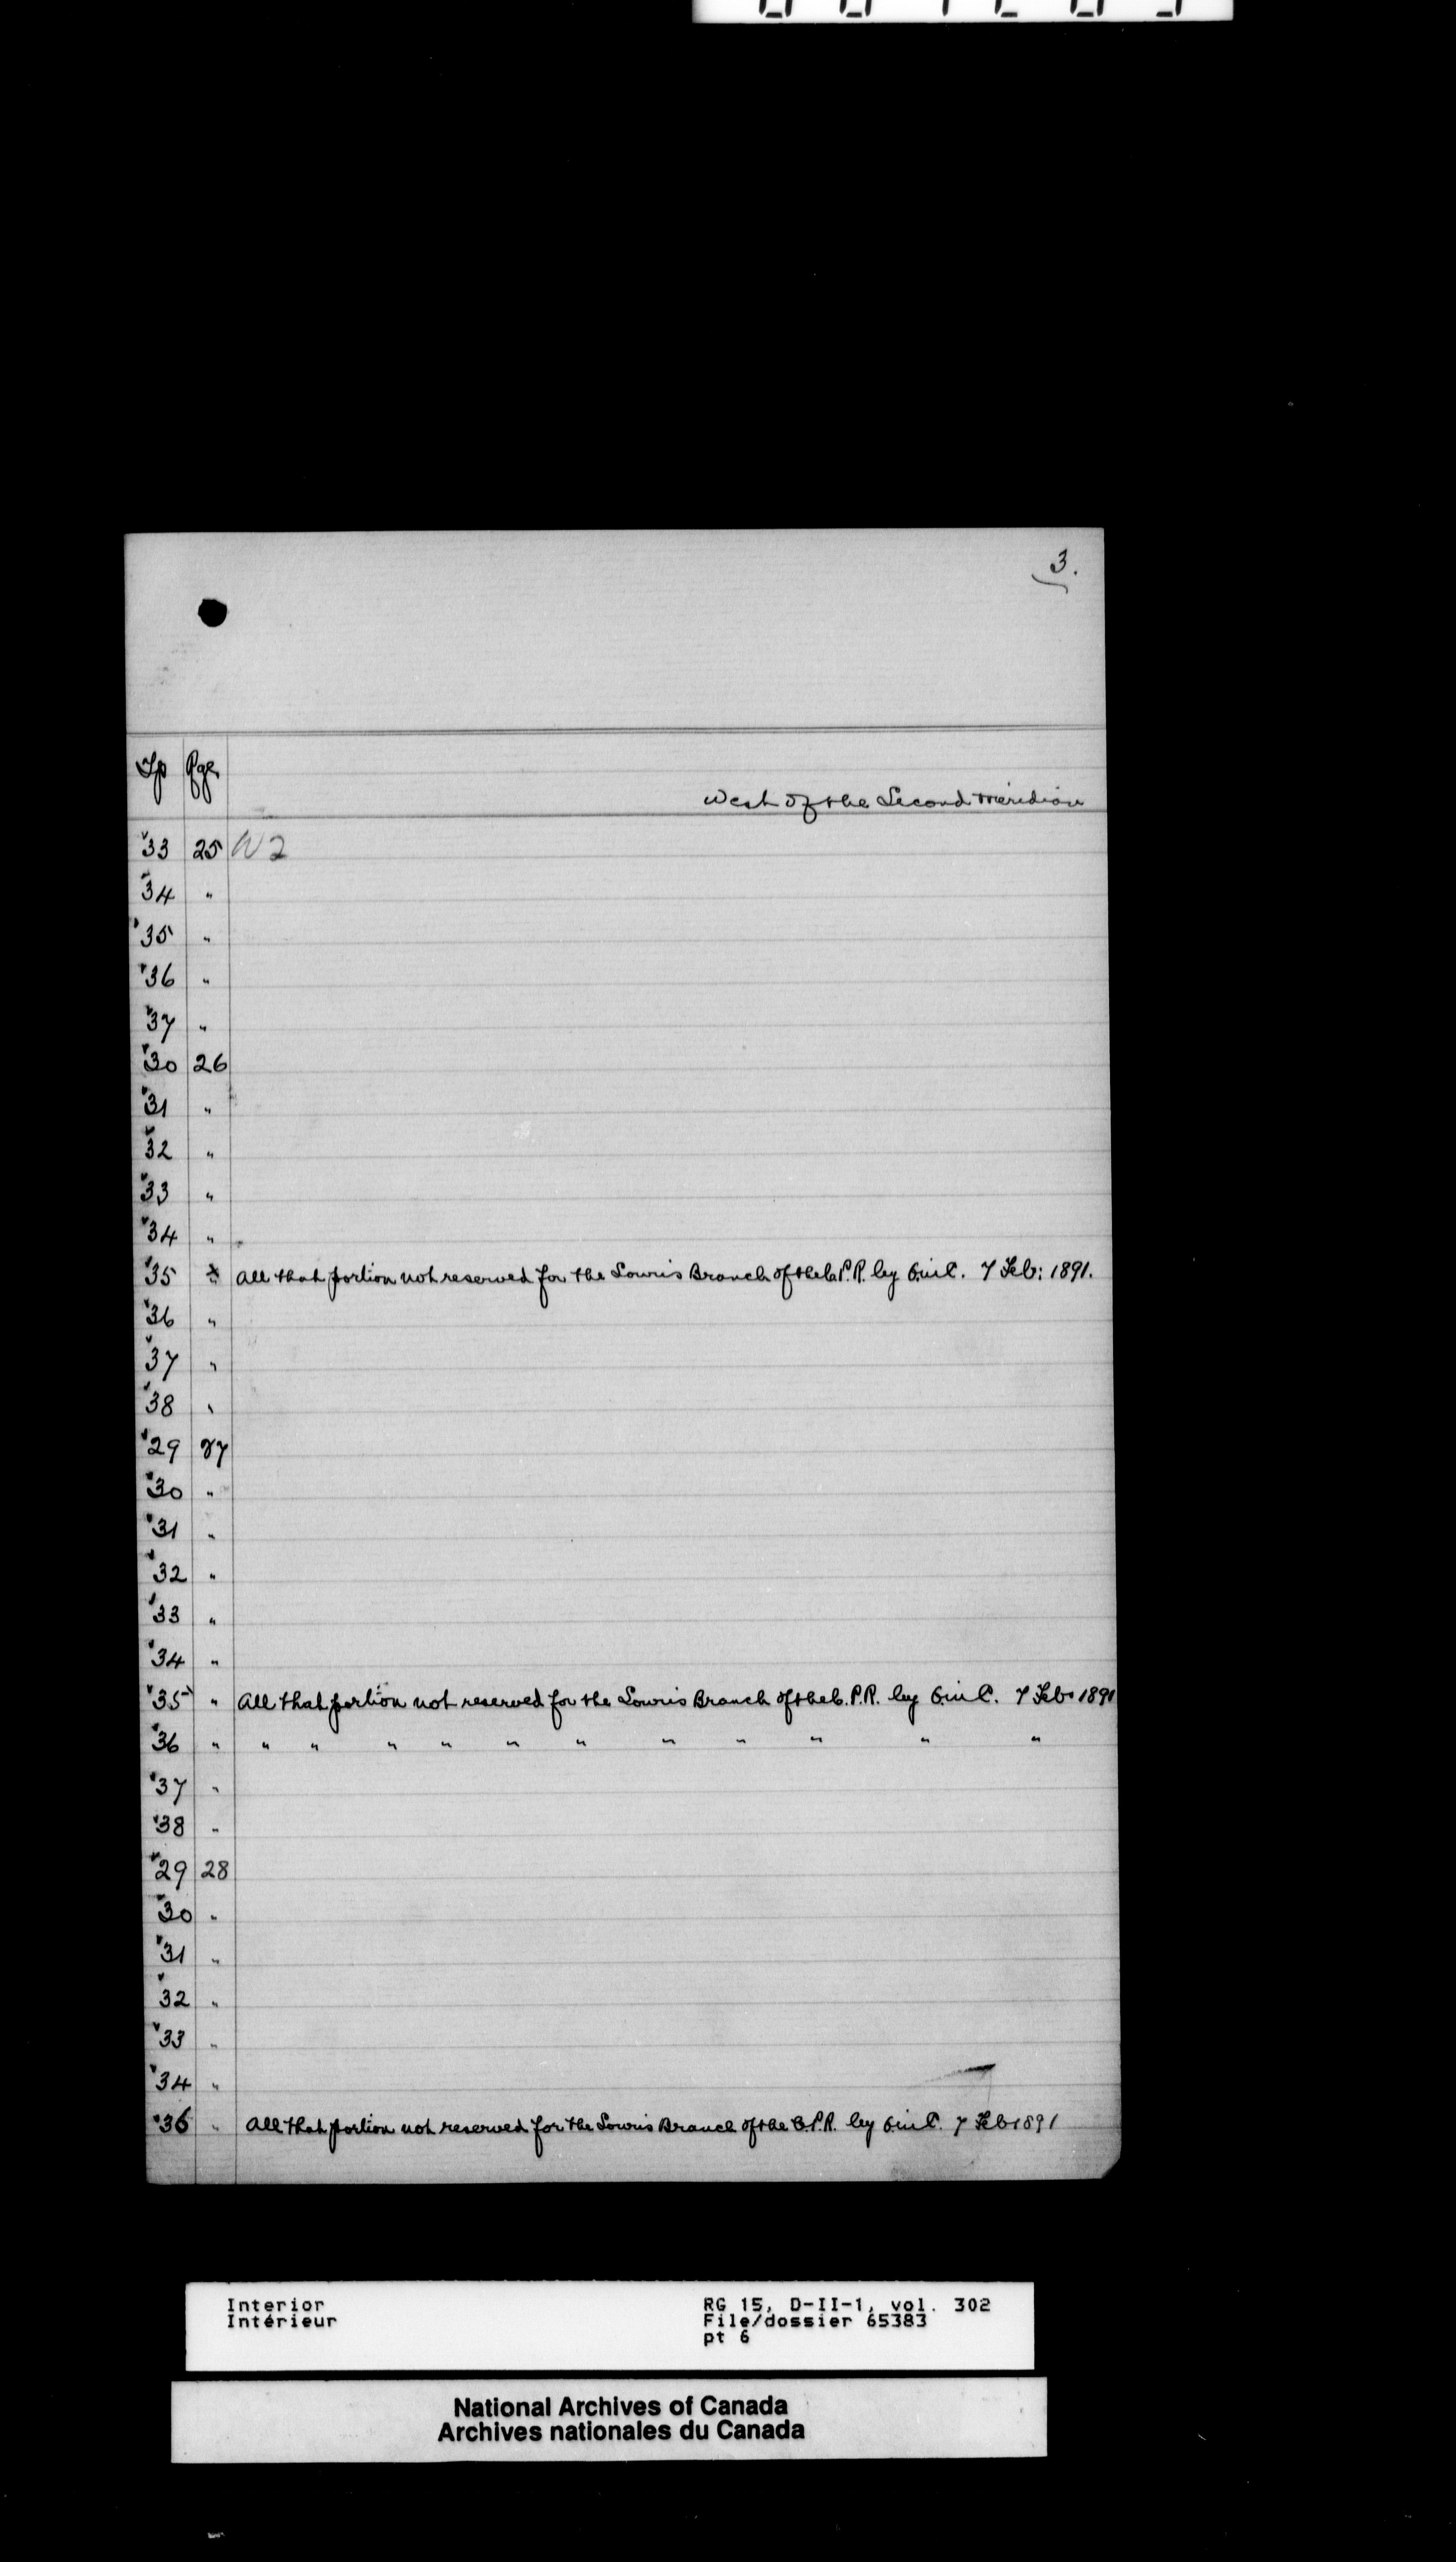 3.
Tp Rge
West of the Second Meridian
33 25 W 2
34 "
35 "
36 "
37 "
30 26
31 "
32 "
33 "
34 "
35 " All that portion not reserved for the Souris Branch of the C.P.R. by O. in C. 7 Feb: 1891.
36 "
37 "
38 "
29 27
30 "
31 "
32 "
33 "
34 "
35 " All that portion not reserved for the Souris Branch of the C.P.R. by O. in C. 7 Feb 1891
36 " " " " " " " " " " " "
37 "
38 "
29 28
30 "
31 "
32 "
33 "
34 "
36 " All that portion not reserved for the Souris Branch of the C.P.R. by O. in C. 7 Feb 1891
Interior
Intérieur
RG 15, D-II-1, vol. 302
File/dossier 65383
pt 6
National Archives of Canada
Archives nationales du Canada